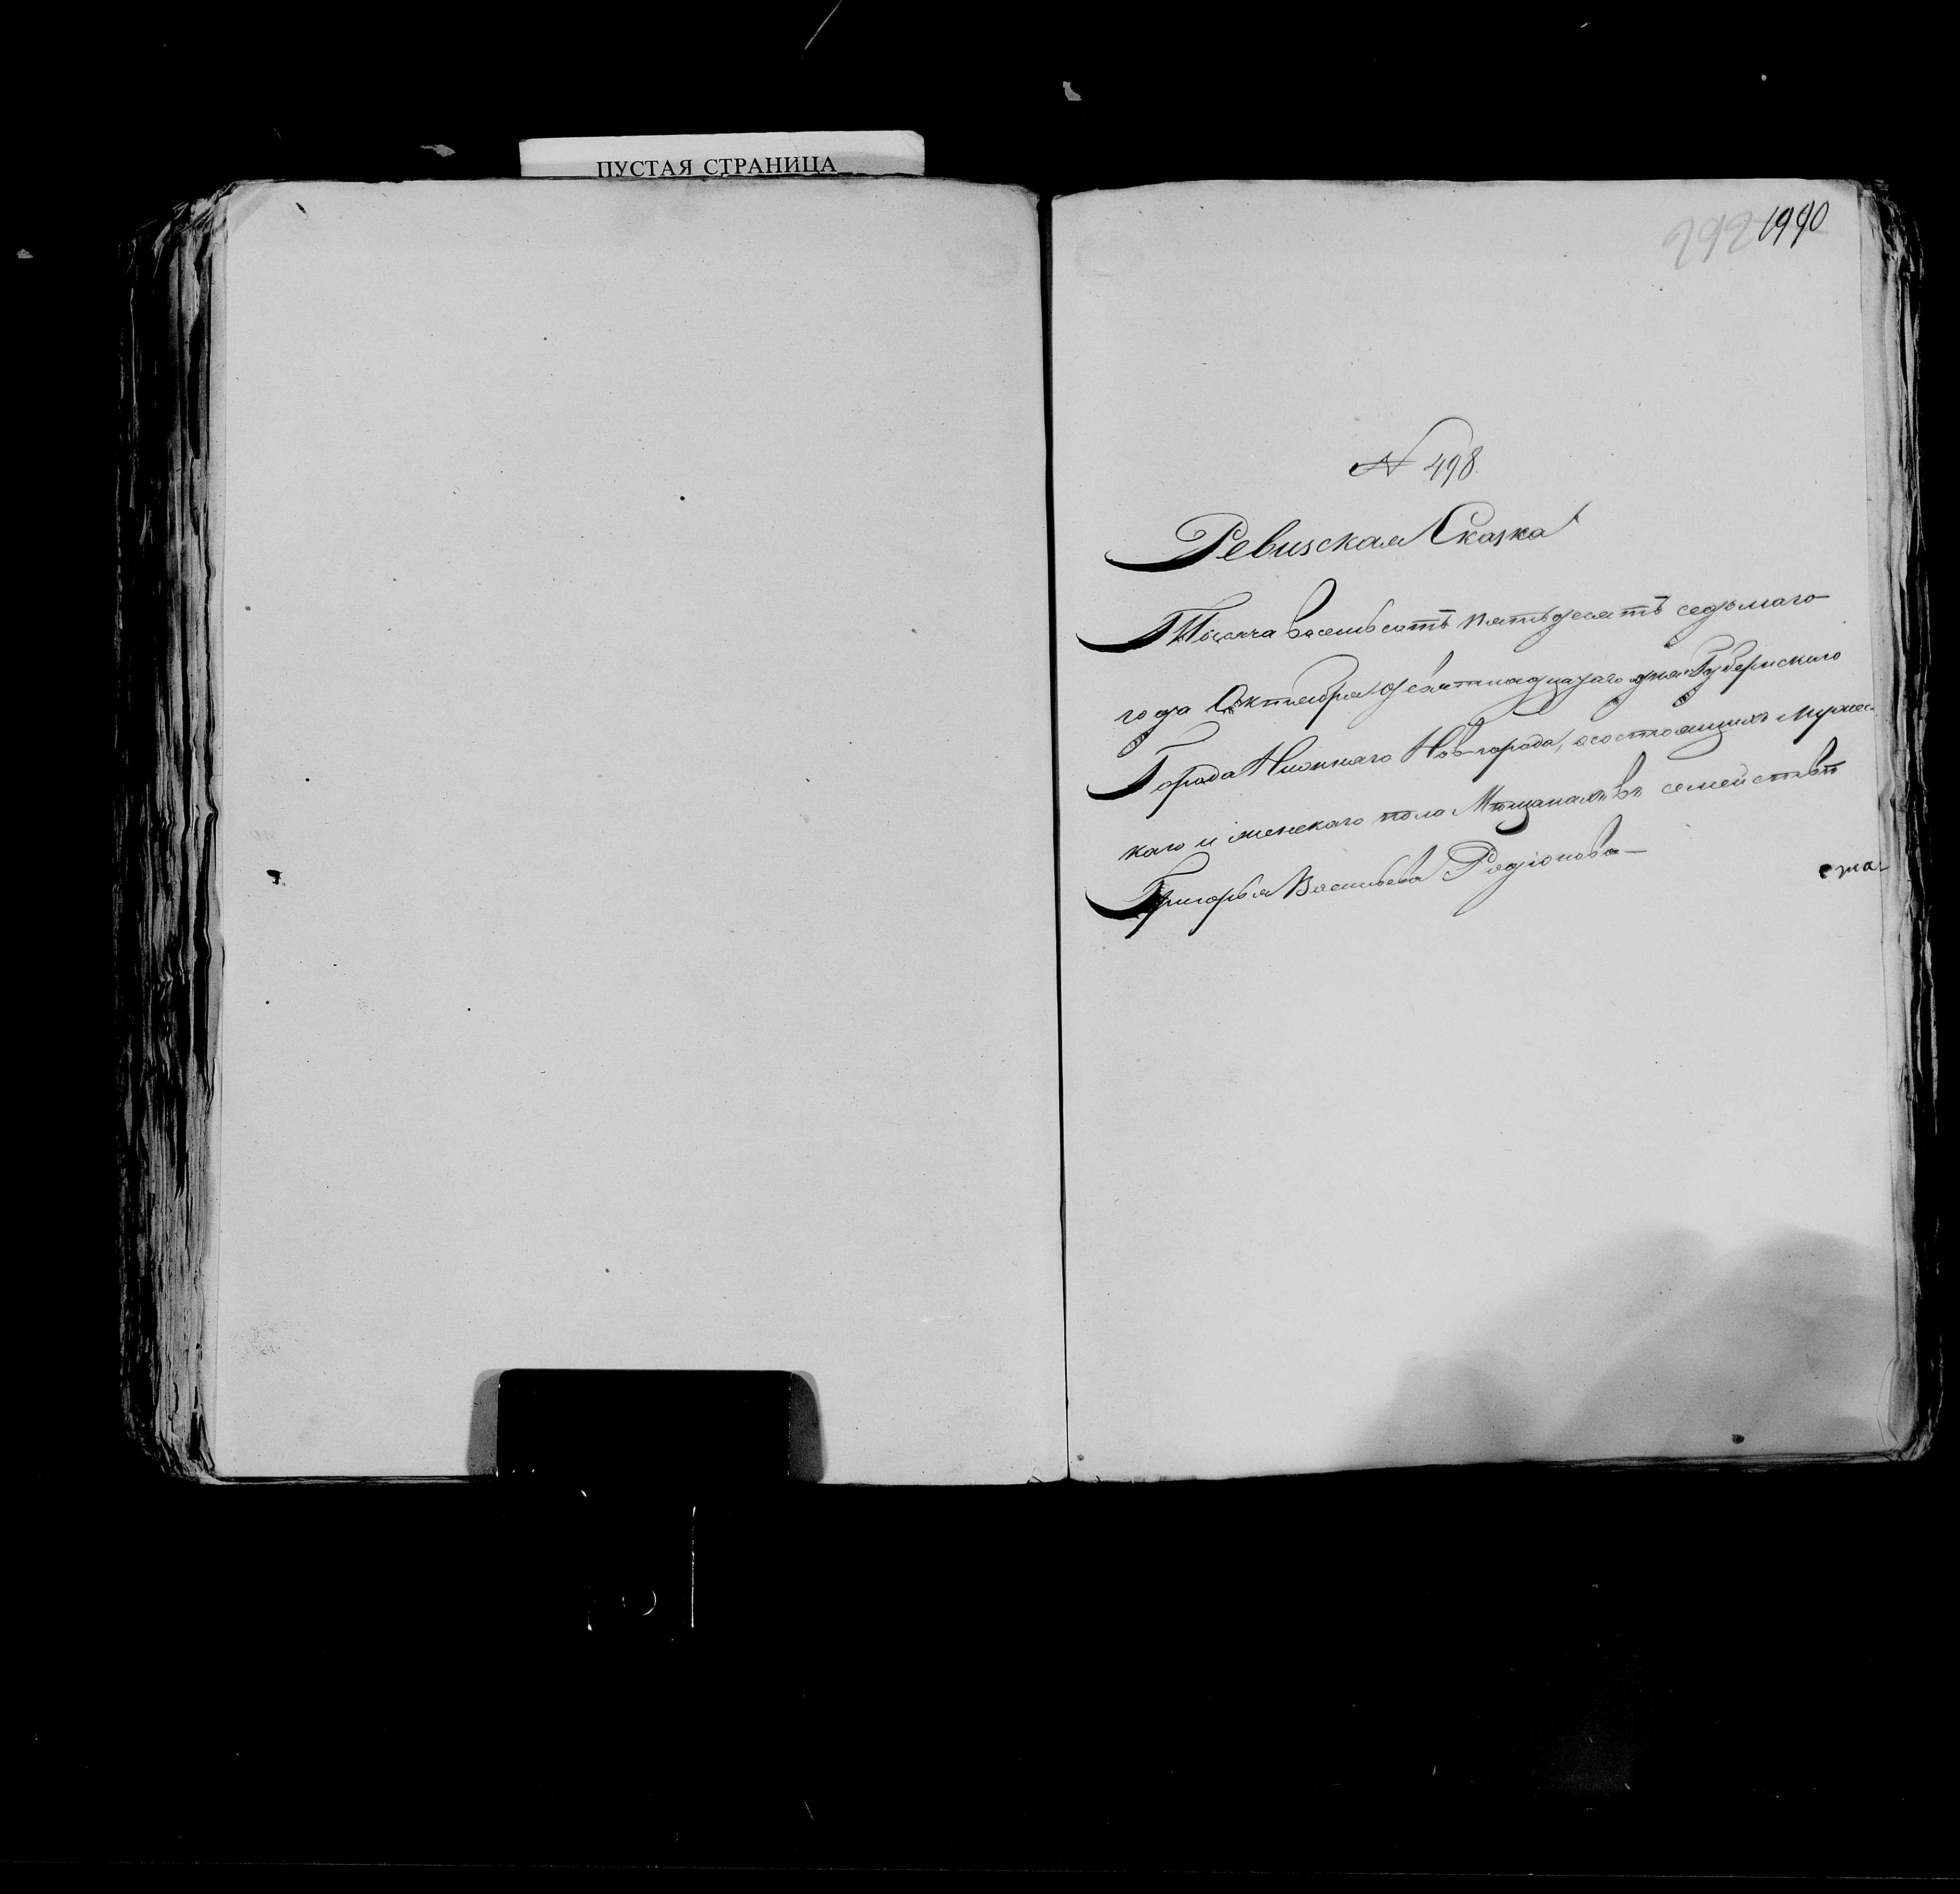 ПУСТАЯ СТРАНИЦА
292 1990
№ 498.
Ревиская Сказка
Тысяча восемьсотъ пятьдесятъ седьмаго
года Октября девятнадцатаго дня Губернскаго
Города Нижняго Новгорода, о состоящихъ мужес-
каго и женскаго пола Мѣщанахъ въ семействѣ
Григорья Васильева Родіонова